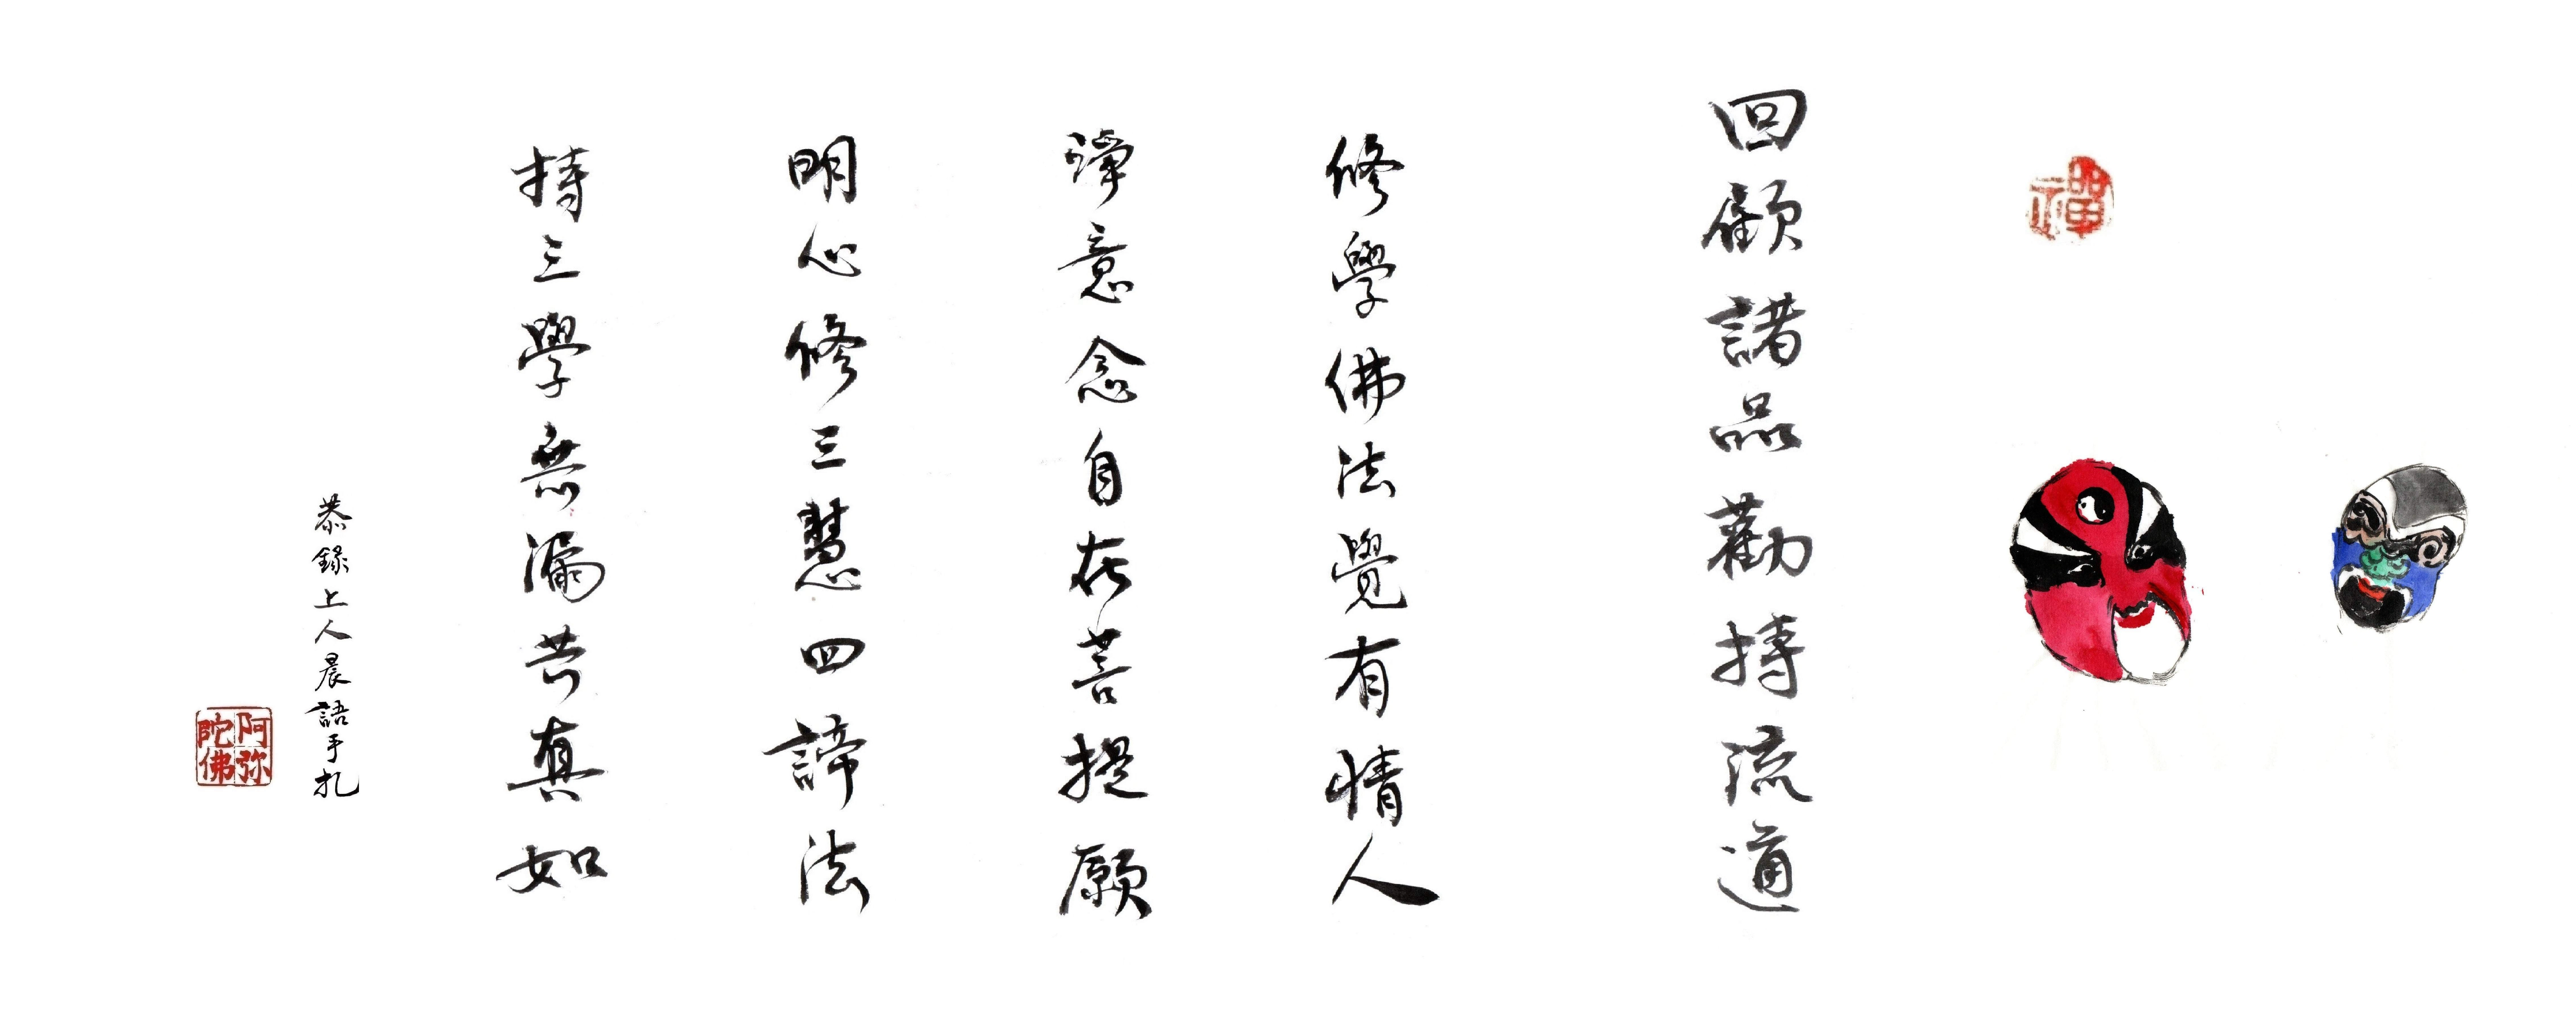 禪
回顧諸品勸持流通
修學佛法覺有情人
禪意念自在菩提願
明心修三慧四諦法
持三學無漏皆真如
恭錄上人晨語手扎
阿弥陀佛